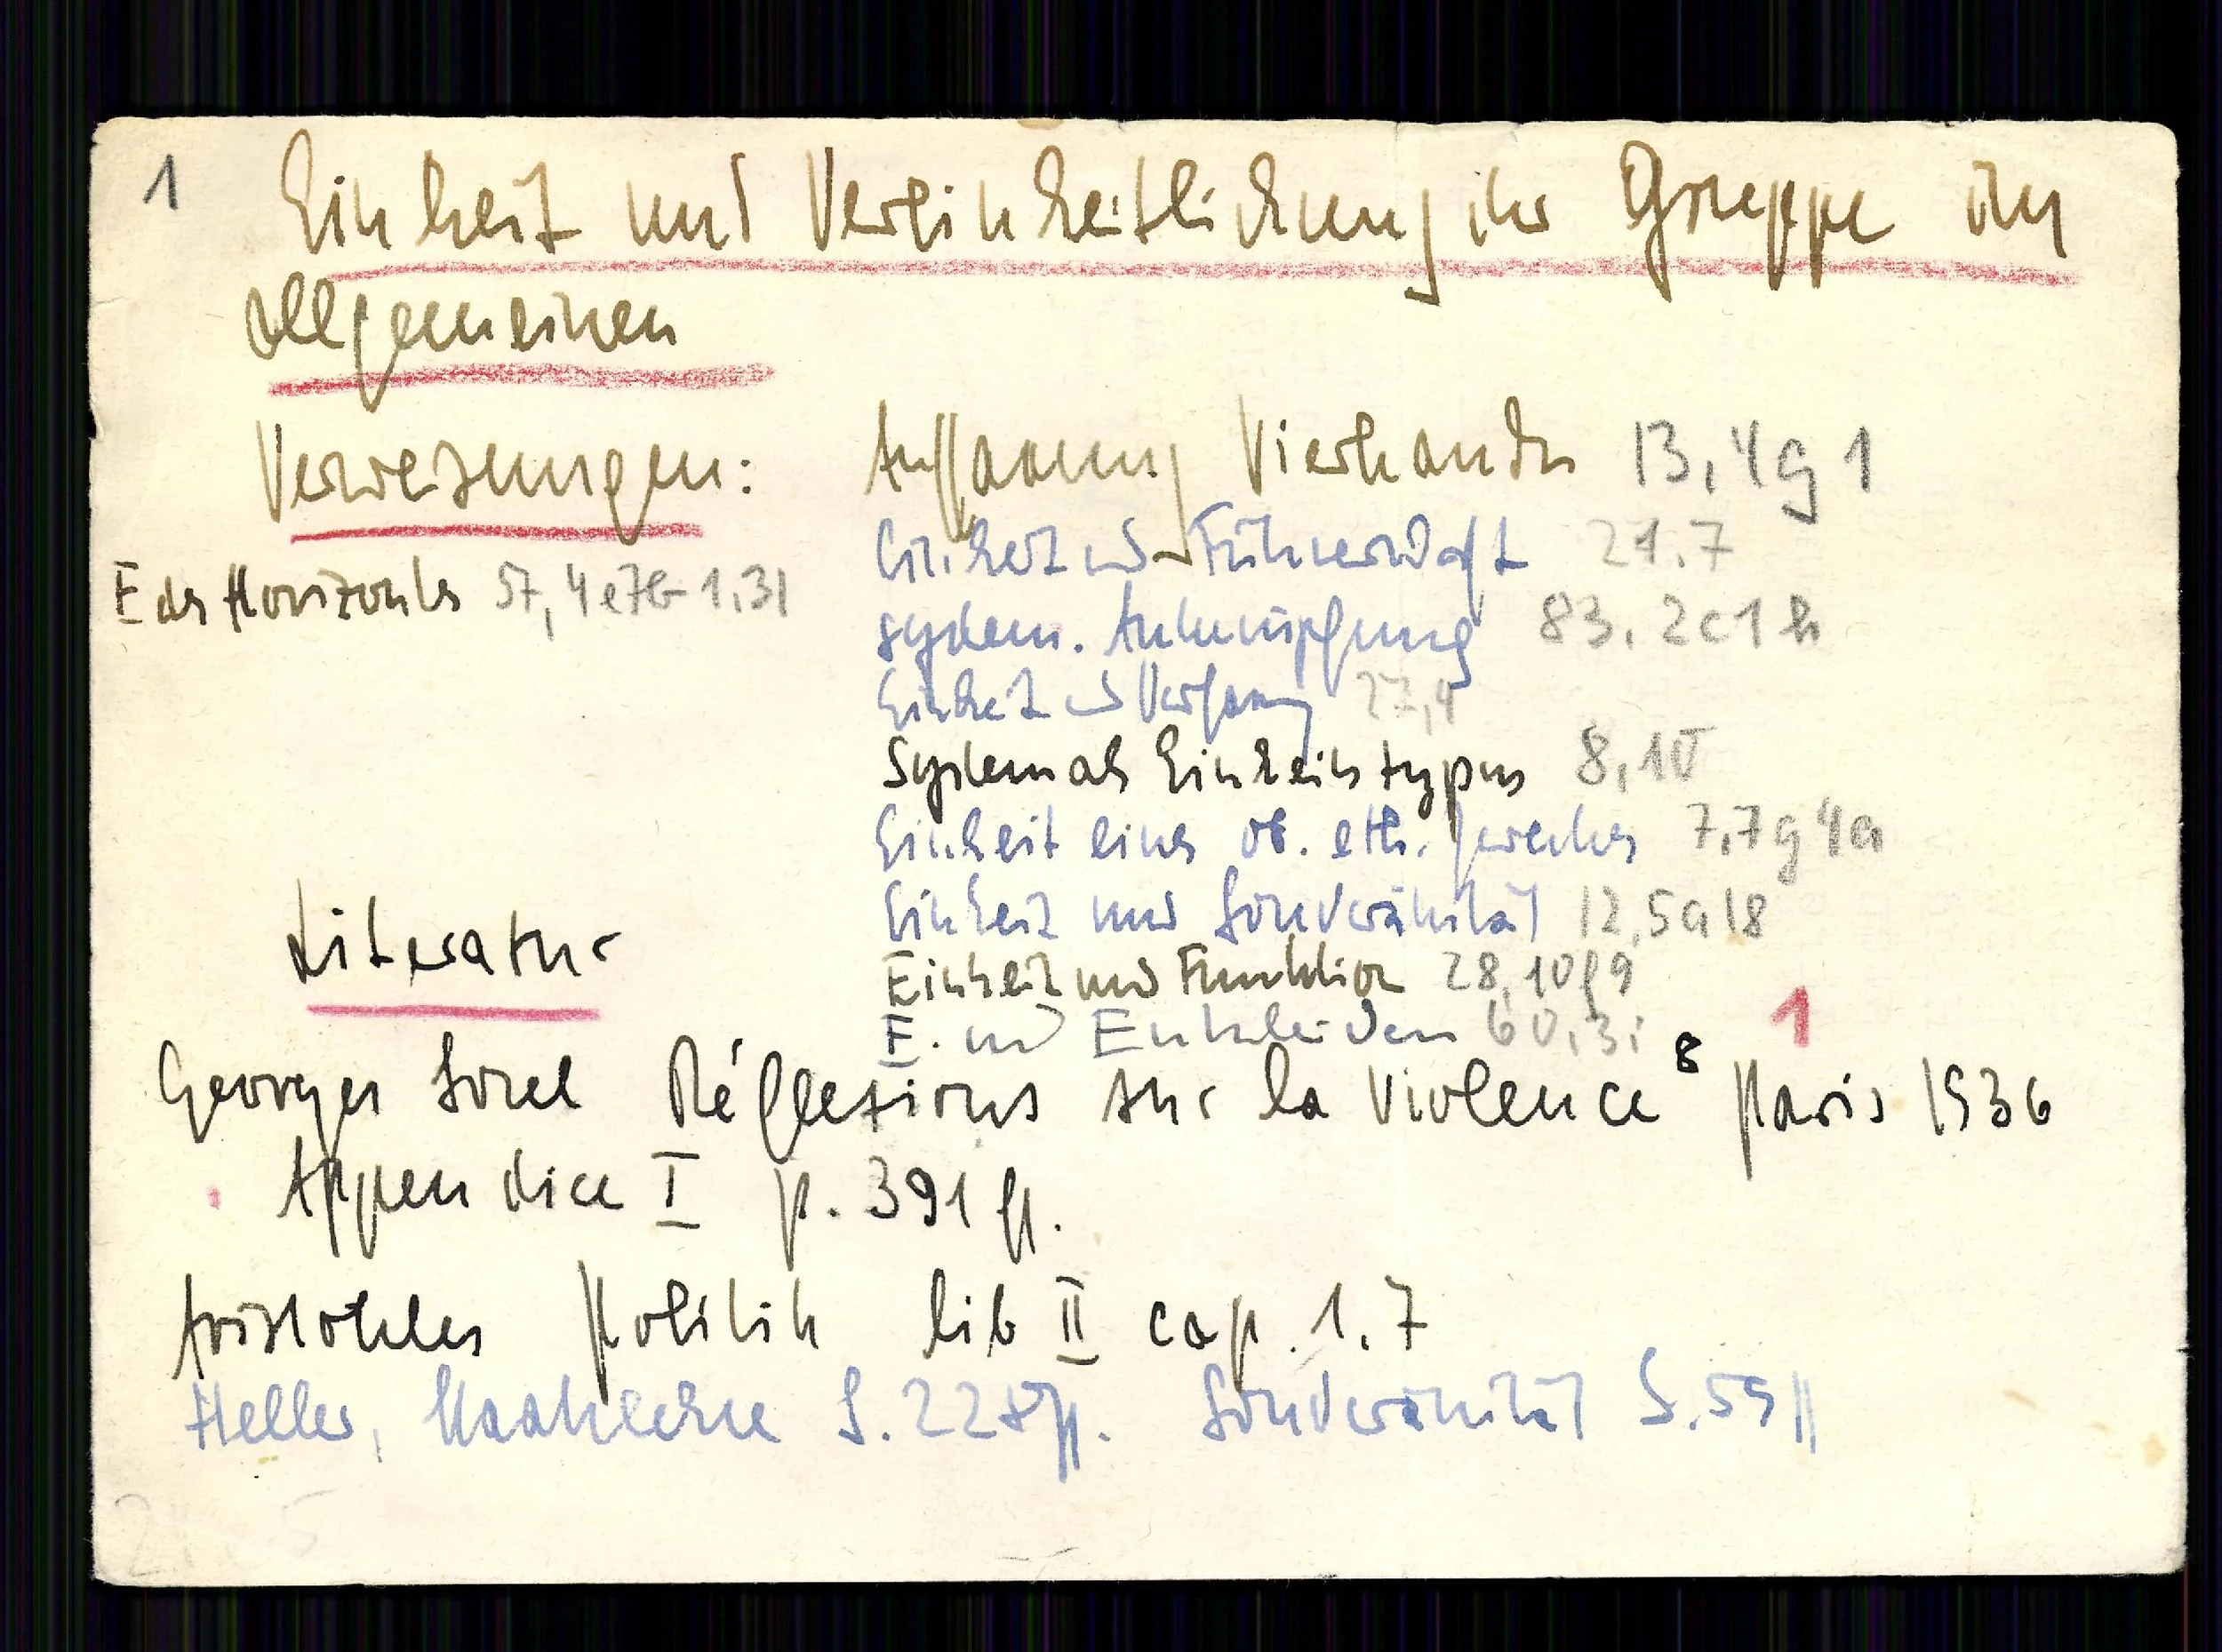 1 Einheit und Vereinheitlichung der Gruppe im
allgemeinen
Verweisungen:
E des Horizontes 57,4e7G-1,31
Auffassung Vierkandts 13,4g1
Einheit und Führerschaft 21.7
system. Anknüpfung 83,2c1h
Einheit und Verfassung 27,4
System als Einheitstypus 8,10
Einheit eines ob. eth. Zweckes 7,7g4a
Einheit und Souveränität 12,5a18
Einheit und Funktion 28,10f9
E. und Entscheiden 60,3i
Literatur
1
Georges Sorel Réflexions sur la Violence 8 Paris 1936
Appendice I p. 391 ff.
Aristoteles Politik lib II cap. 1.7
Heller, Staatslehre S. 228ff. Souveränität S. 59 ff